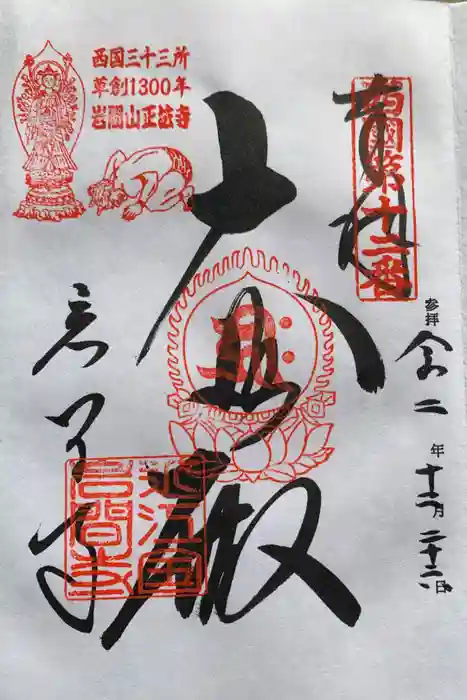 西国三十三所
草創1300年
岩間山正法寺
奉拝
西國第十二番
参拝 令二年十二月二十二日
大悲殿
岩間寺
近江国
岩間寺